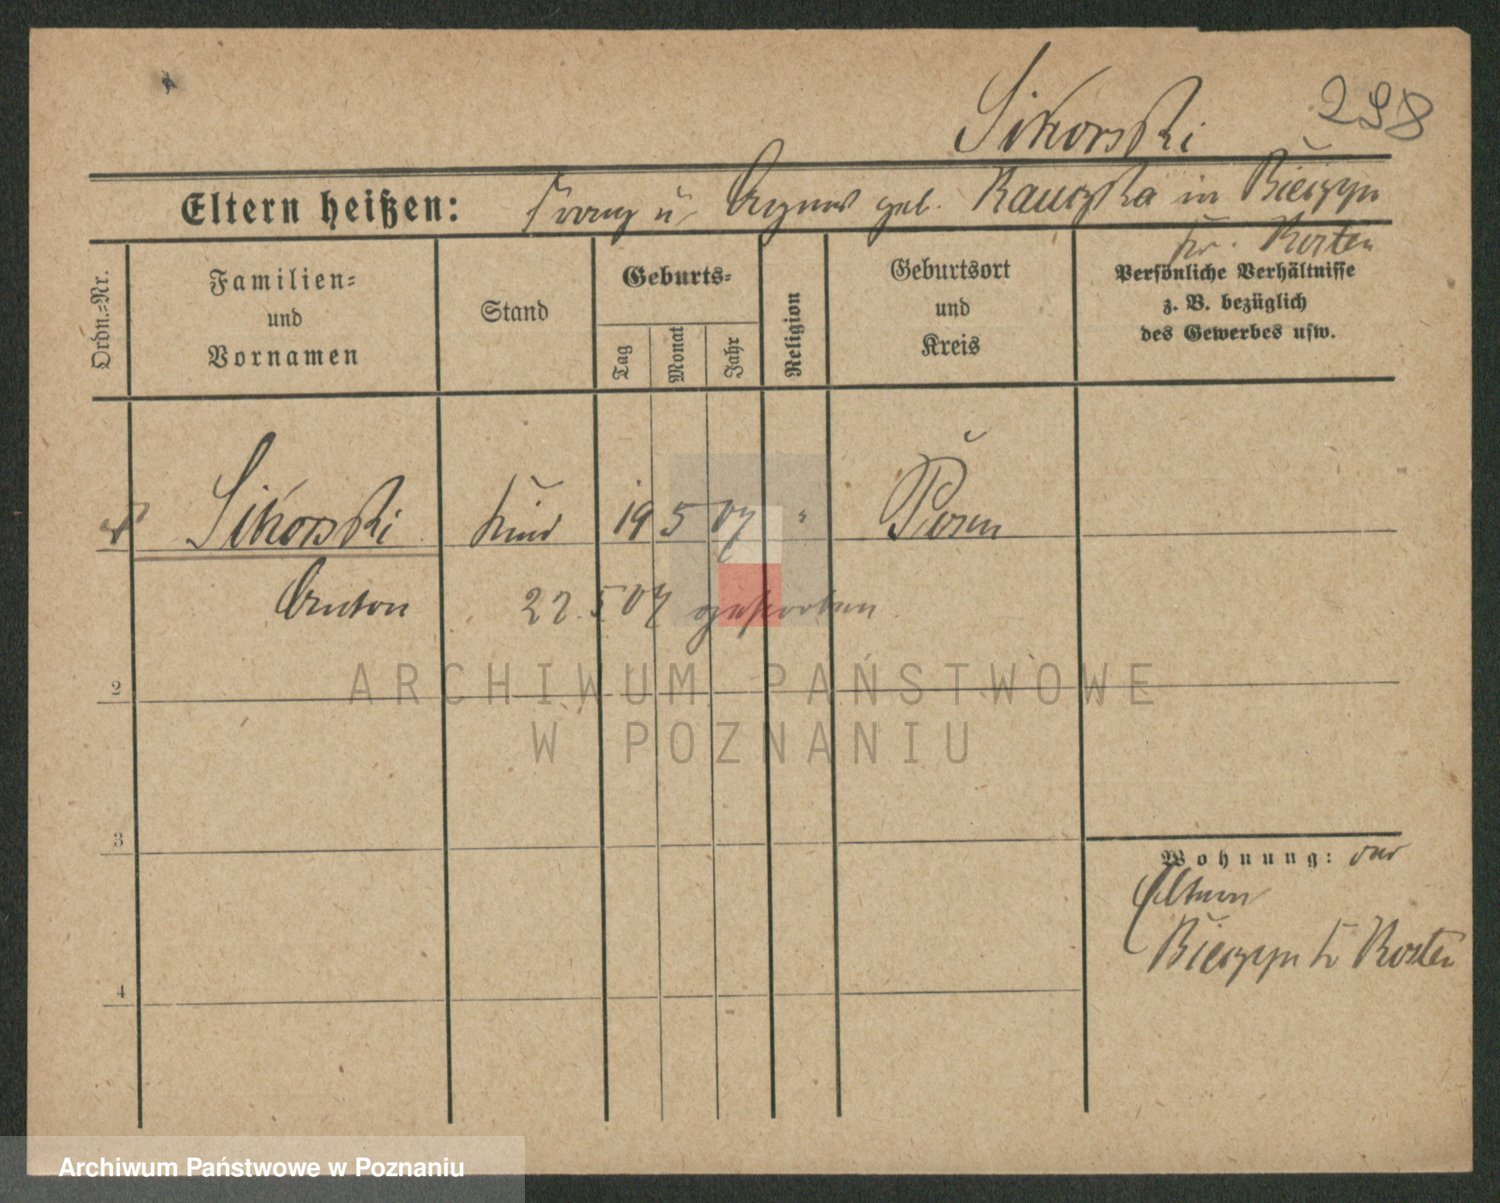 Sikorski
298
Eltern heißen: Franz u. Agnes geb. Kauczka in Bieczyn
Kr. Kosten
Ordn.=Nr.
Familien=
und
Vornamen
Stand
Geburts=
Tag
Monat
Jahr
Religion
Geburtsort
und
Kreis
Persönliche Verhältnisse
z. B. bezüglich
des Gewerbes usw.
Sikorski Kind 19 5 07 " Posen
Anton 22. 5 07 gestorben
2
3
4
Wohnung: der
Eltern
Bieczyn Kr Kosten
ARCHIWUM PAŃSTWOWE
W POZNANIU
Archiwum Państwowe w Poznaniu